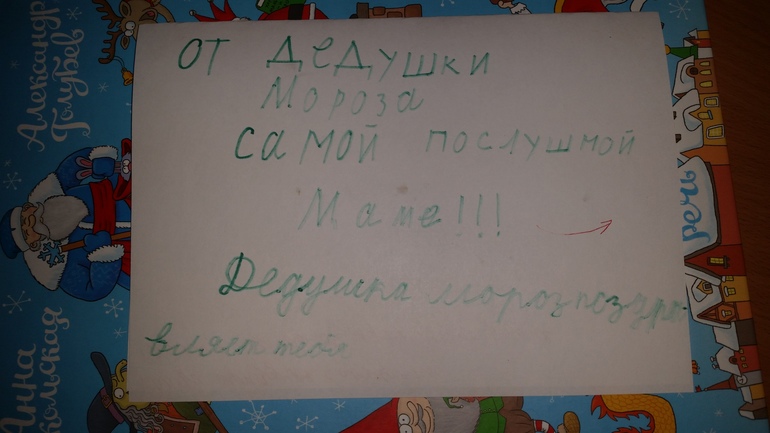 Александр
Голубев
от дедушки
Мороза
самой послушной
Маме!!!
Дедушка мороз поздра
вляет тебя
речь
Анна